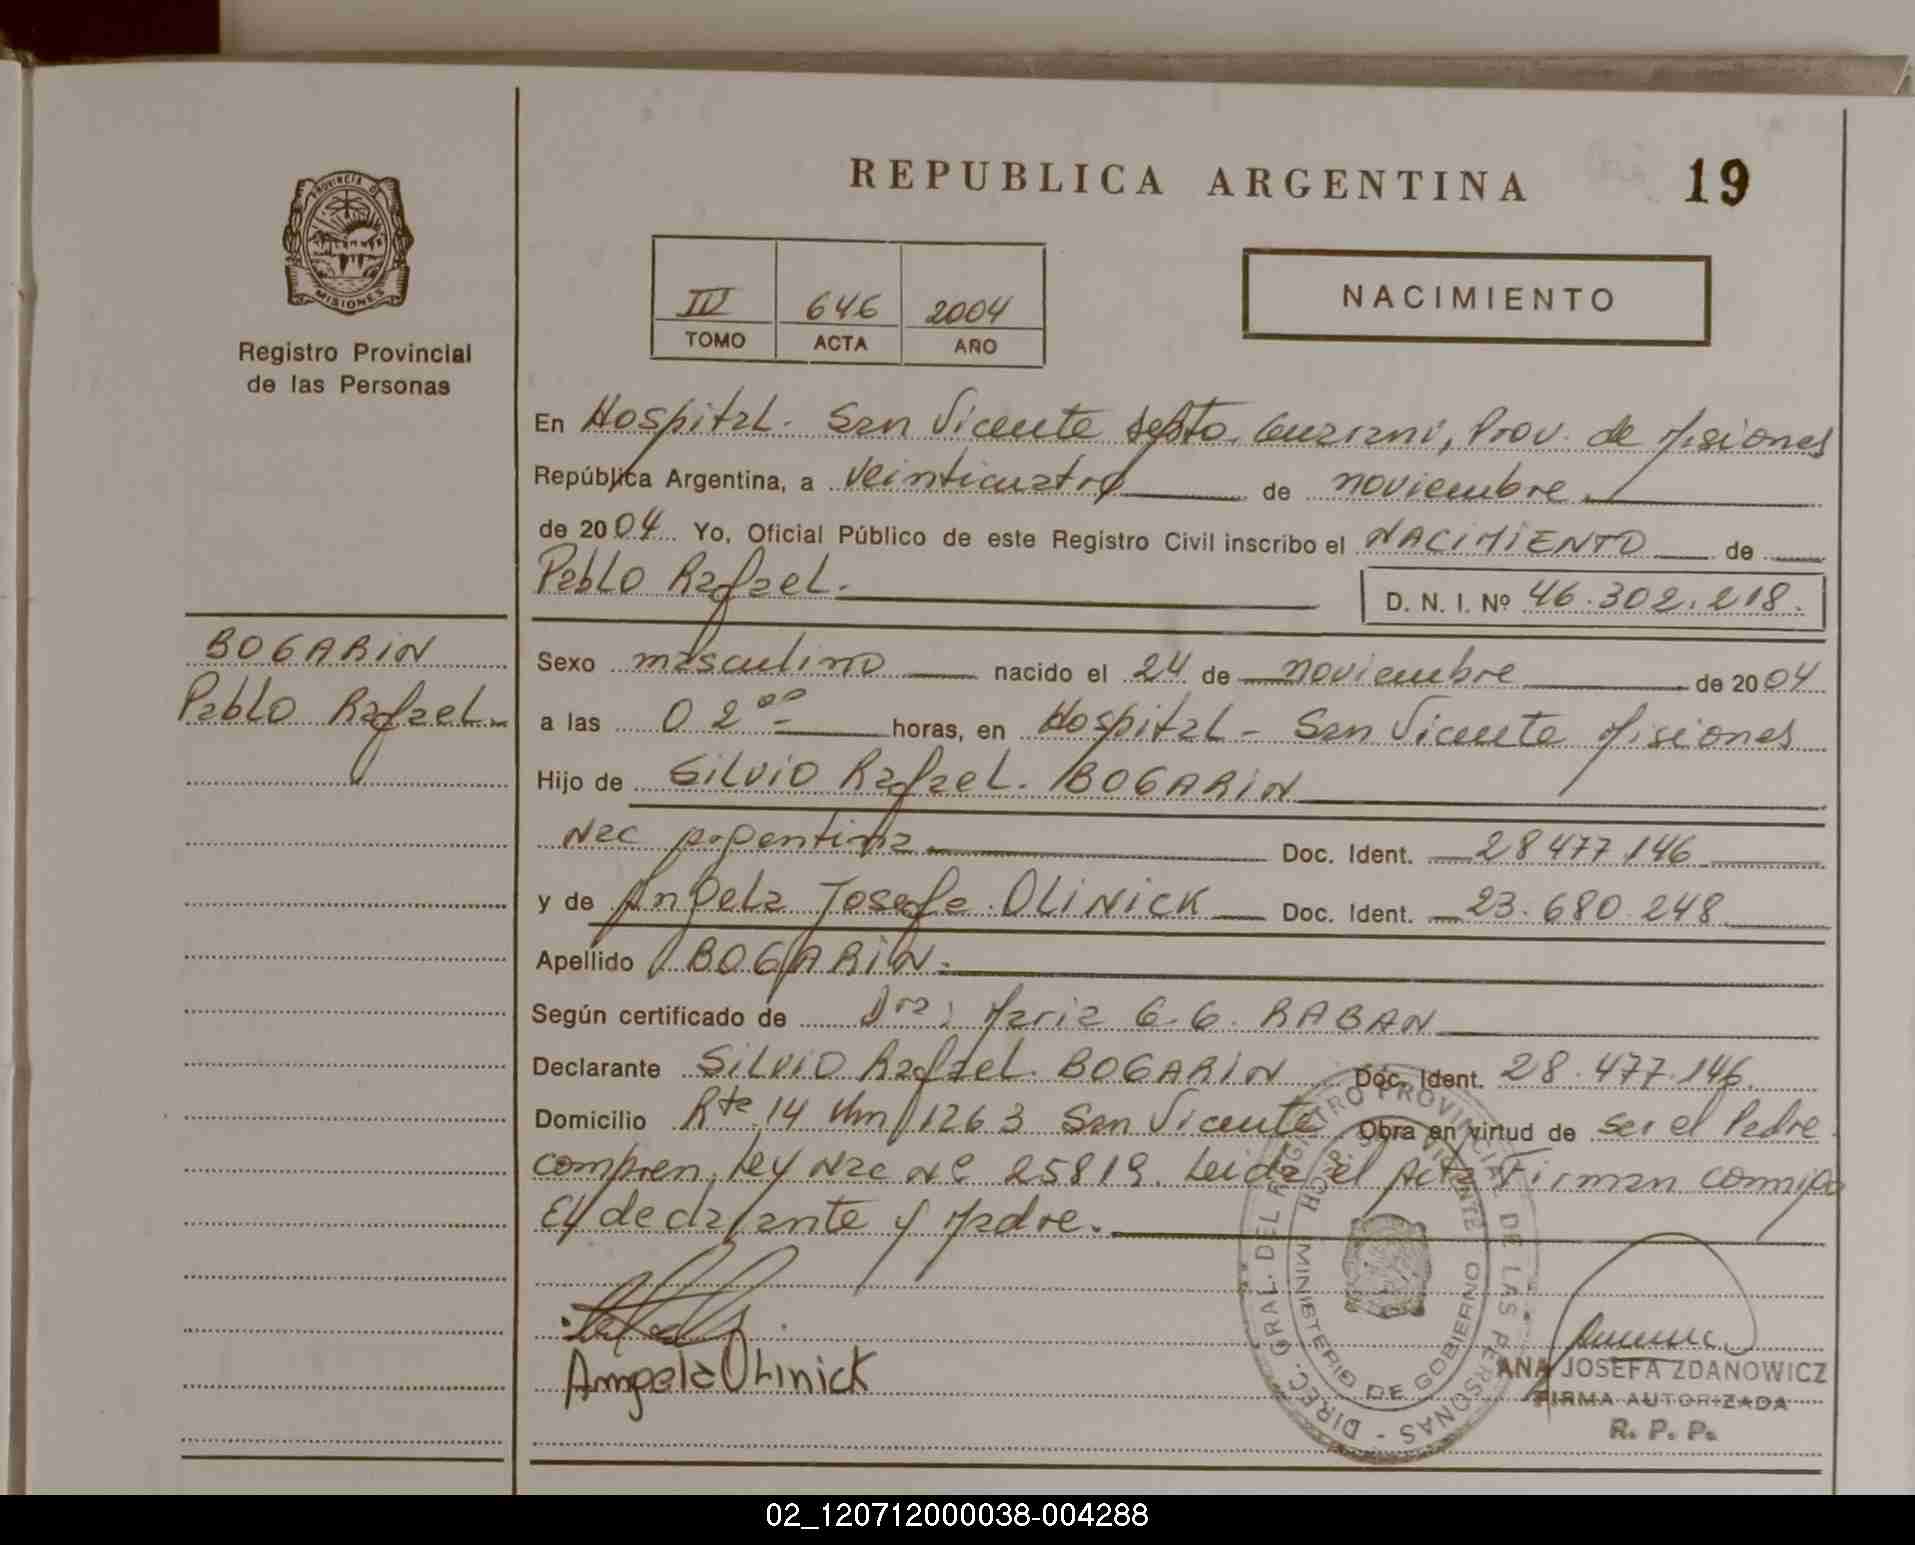 REPUBLICA ARGENTINA 19
PROVINCIA DE
MISIONES
Registro Provincial
de las Personas
IV 646 2004
TOMO ACTA AÑO
NACIMIENTO
En Hospital. San Vicente Depto. Guarani, Prov. de Misiones
República Argentina, a veinticuatro de noviembre
de 2004. Yo, Oficial Público de este Registro Civil inscribo el NACIMIENTO de
Pablo Rafael. D. N. I. Nº 46.302.218.
BOGARIN
Pablo Rafael
Sexo masculino nacido el 24 de noviembre de 2004
a las 02 00 horas, en Hospital - San Vicente Misiones
Hijo de Silvio Rafael. BOGARIN
Nac Argentina Doc. Ident. 28477.146
y de Angela Josefa. OLINICK Doc. Ident. 23.680.248
Apellido BOGARIN.
Según certificado de Dra; Maria G.G. RABAN
Declarante Silvio Rafael. BOGARIN Doc. Ident. 28.477.146
Domicilio Rta 14 Km 1263 San Vicente Obra en virtud de ser el Padre
compren. Ley Nac Nº 25819. Leida el Acta Firman conmigo
El declarante y Madre.
Angela Olinick
DIREC. GRAL. DEL REGISTRO PROVINCIAL DE LAS PERSONAS
MINISTERIO DE GOBIERNO
HOSP. S. VICENTE
ANA JOSEFA ZDANOWICZ
FIRMA AUTORIZADA
R. P. P.
02_120712000038-004288